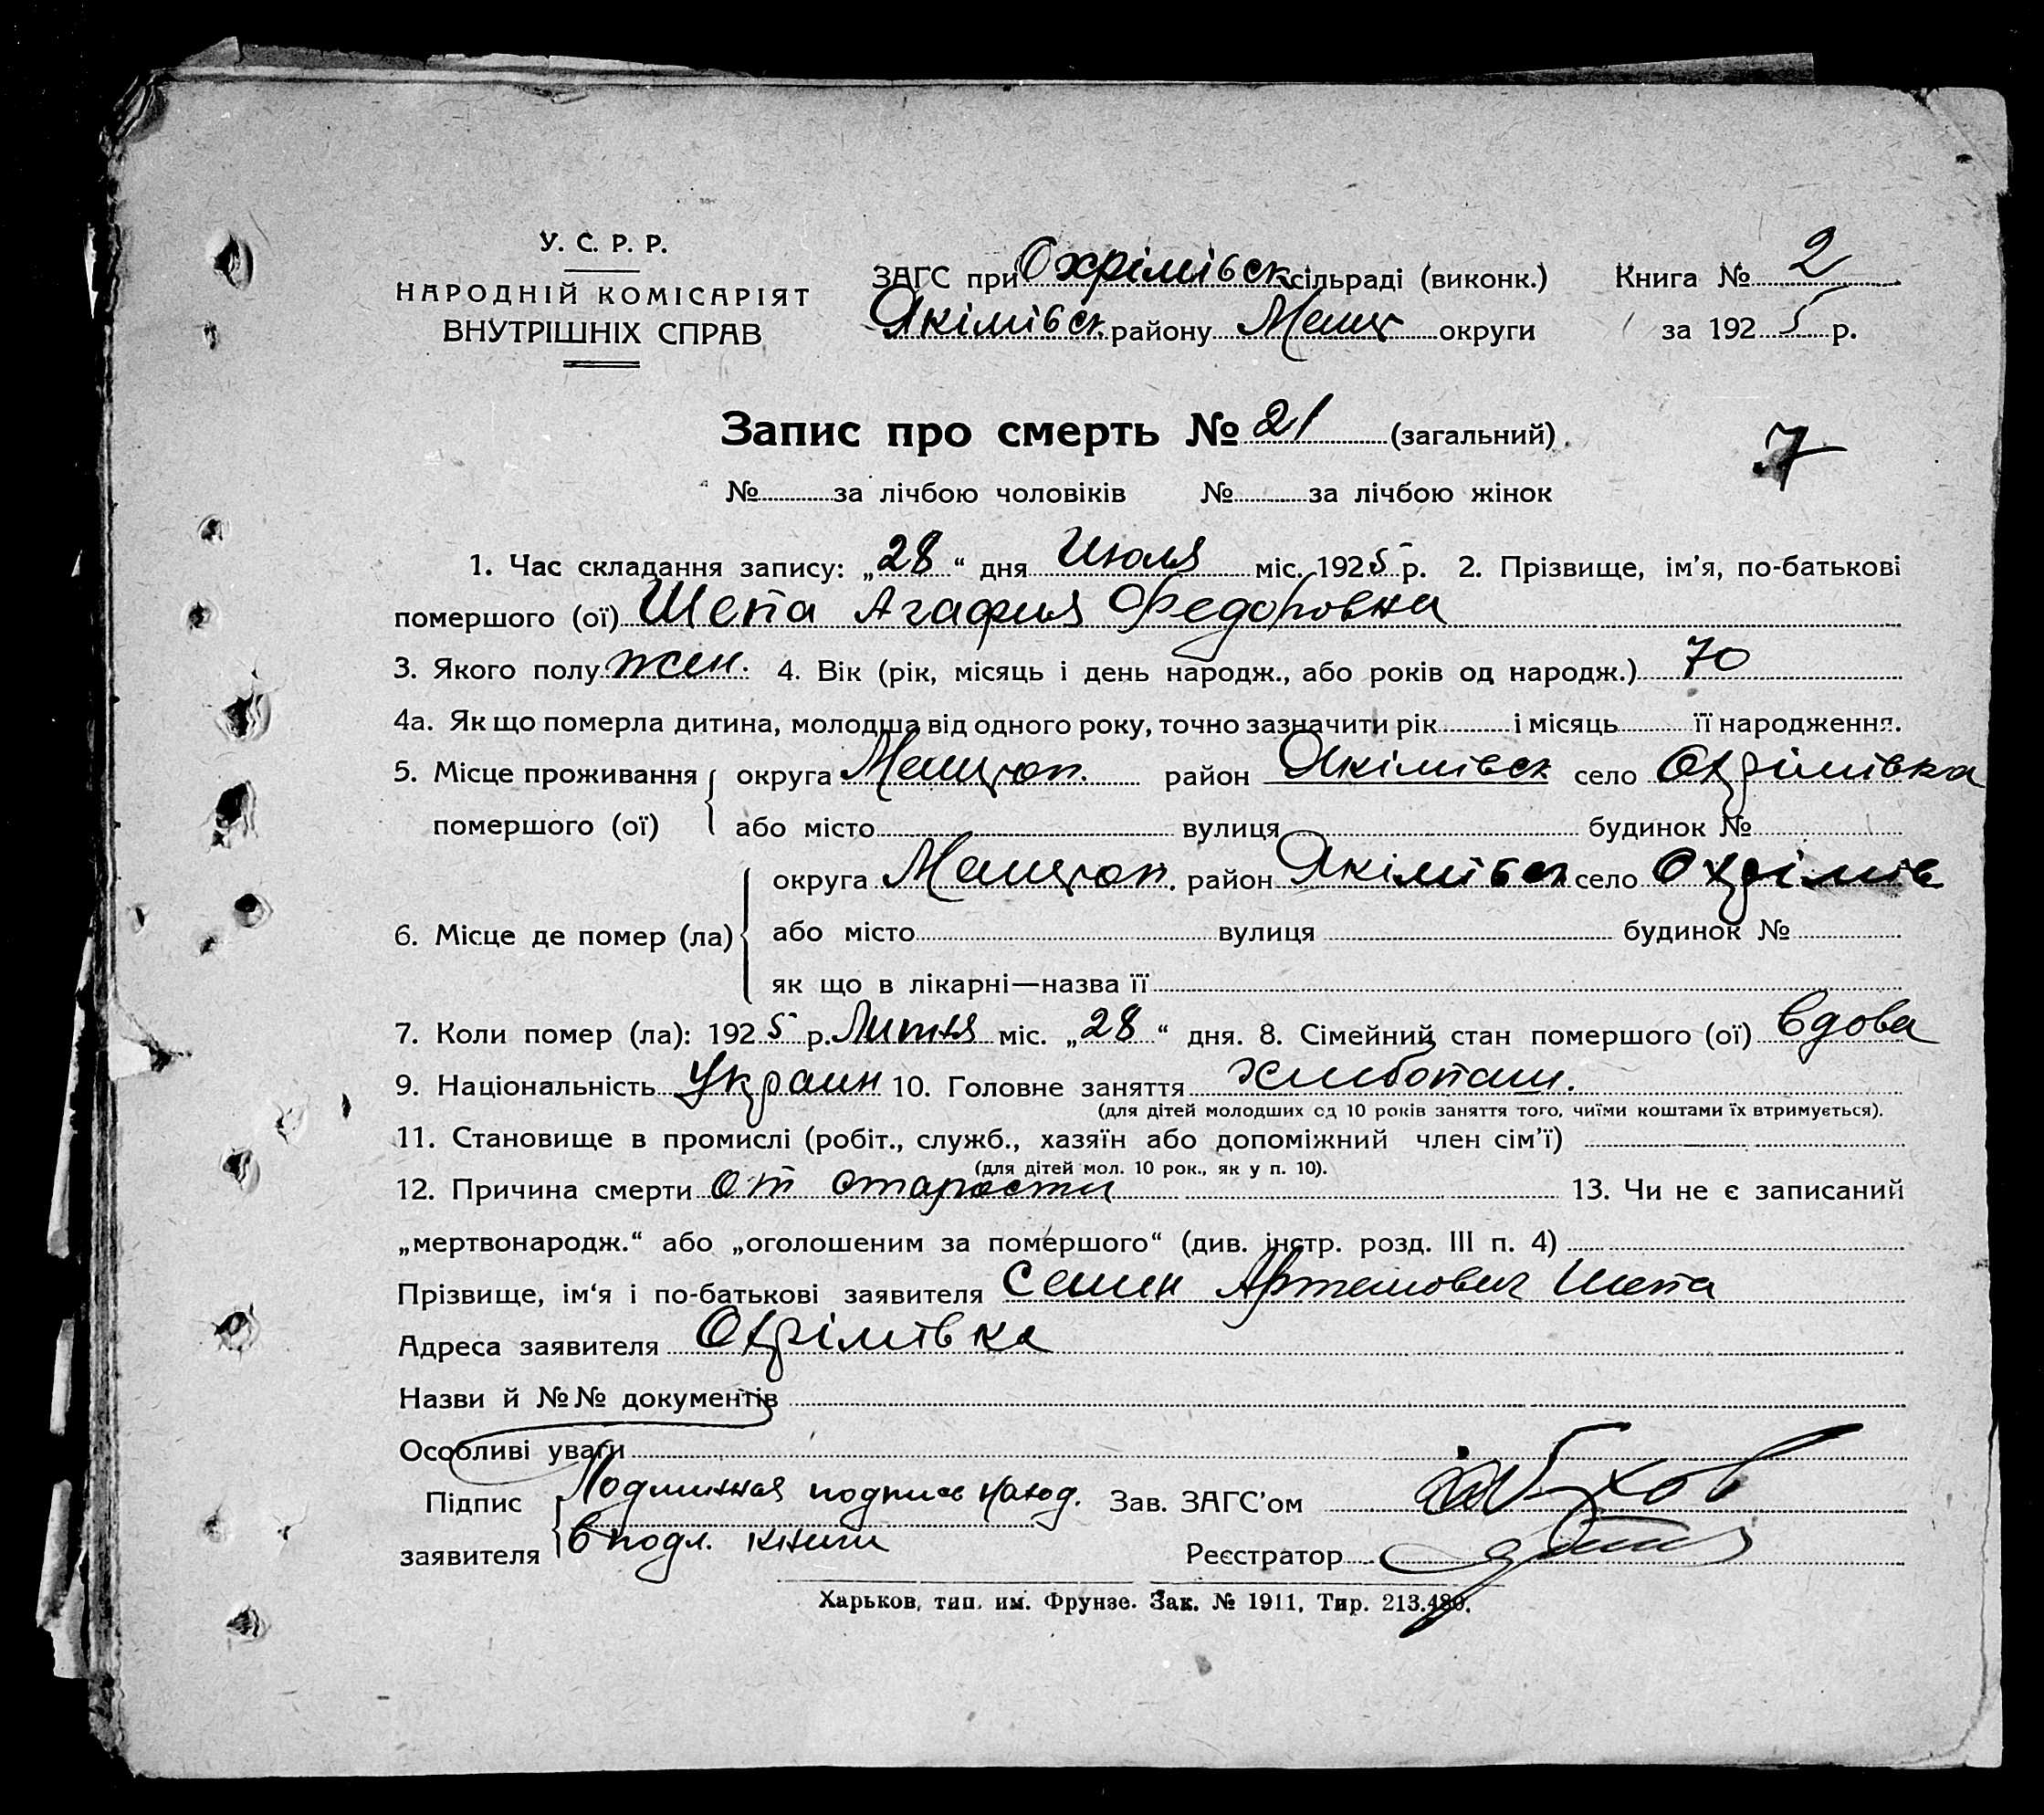 У. С. Р. Р.
НАРОДНІЙ КОМІСАРІЯТ
ВНУТРІШНІХ СПРАВ
ЗАГС при Охрімівск сільраді (виконк.) Книга № 2
Якімівск. району Мелит округи за 1925 р.
Запис про смерть № 21 (загальний).
7
№ за лічбою чоловіків № за лічбою жінок
1. Час складання запису: „28“ дня Июля міс. 1925 р. 2. Прізвище, ім'я, по-батькові
помершого (ої) Шепа Агафия Федоровна
3. Якого полу жен. 4. Вік (рік, місяць і день народж., або років од народж.) 70
4а. Як що померла дитина, молодша від одного року, точно зазначити рік і місяць її народження.
5. Місце проживання округа Мелитоп. район Якімівск село Охрімівка
помершого (ої) або місто вулиця будинок №
округа Мелитоп. район Якімівск село Охрімів
6. Місце де помер (ла) або місто вулиця будинок №
як що в лікарні—назва її
7. Коли помер (ла): 1925 р. Липня міс. „28“ дня. 8. Сімейний стан помершого (ої) вдова
9. Національність Украин 10. Головне заняття хлибопаш.
(для дітей молодших од 10 років заняття того, чиїми коштами їх втримується).
11. Становище в промислі (робіт., служб., хазяїн або допоміжний член сім'ї)
(для дітей мол. 10 рок., як у п. 10).
12. Причина смерти от старости 13. Чи не є записаний
„мертвонародж.“ або „оголошеним за помершого“ (див. інстр. розд. III п. 4)
Прізвище, ім'я і по-батькові заявителя Семен Артемович Шепа
Адреса заявителя Охрімівка
Назви й №№ документів
Особливі уваги
Підпис Подлинная подпись наход. Зав. ЗАГС'ом
заявителя в подл. книги Реєстратор
Харьков, тип. им. Фрунзе. Зак. № 1911, Тир. 213.480.